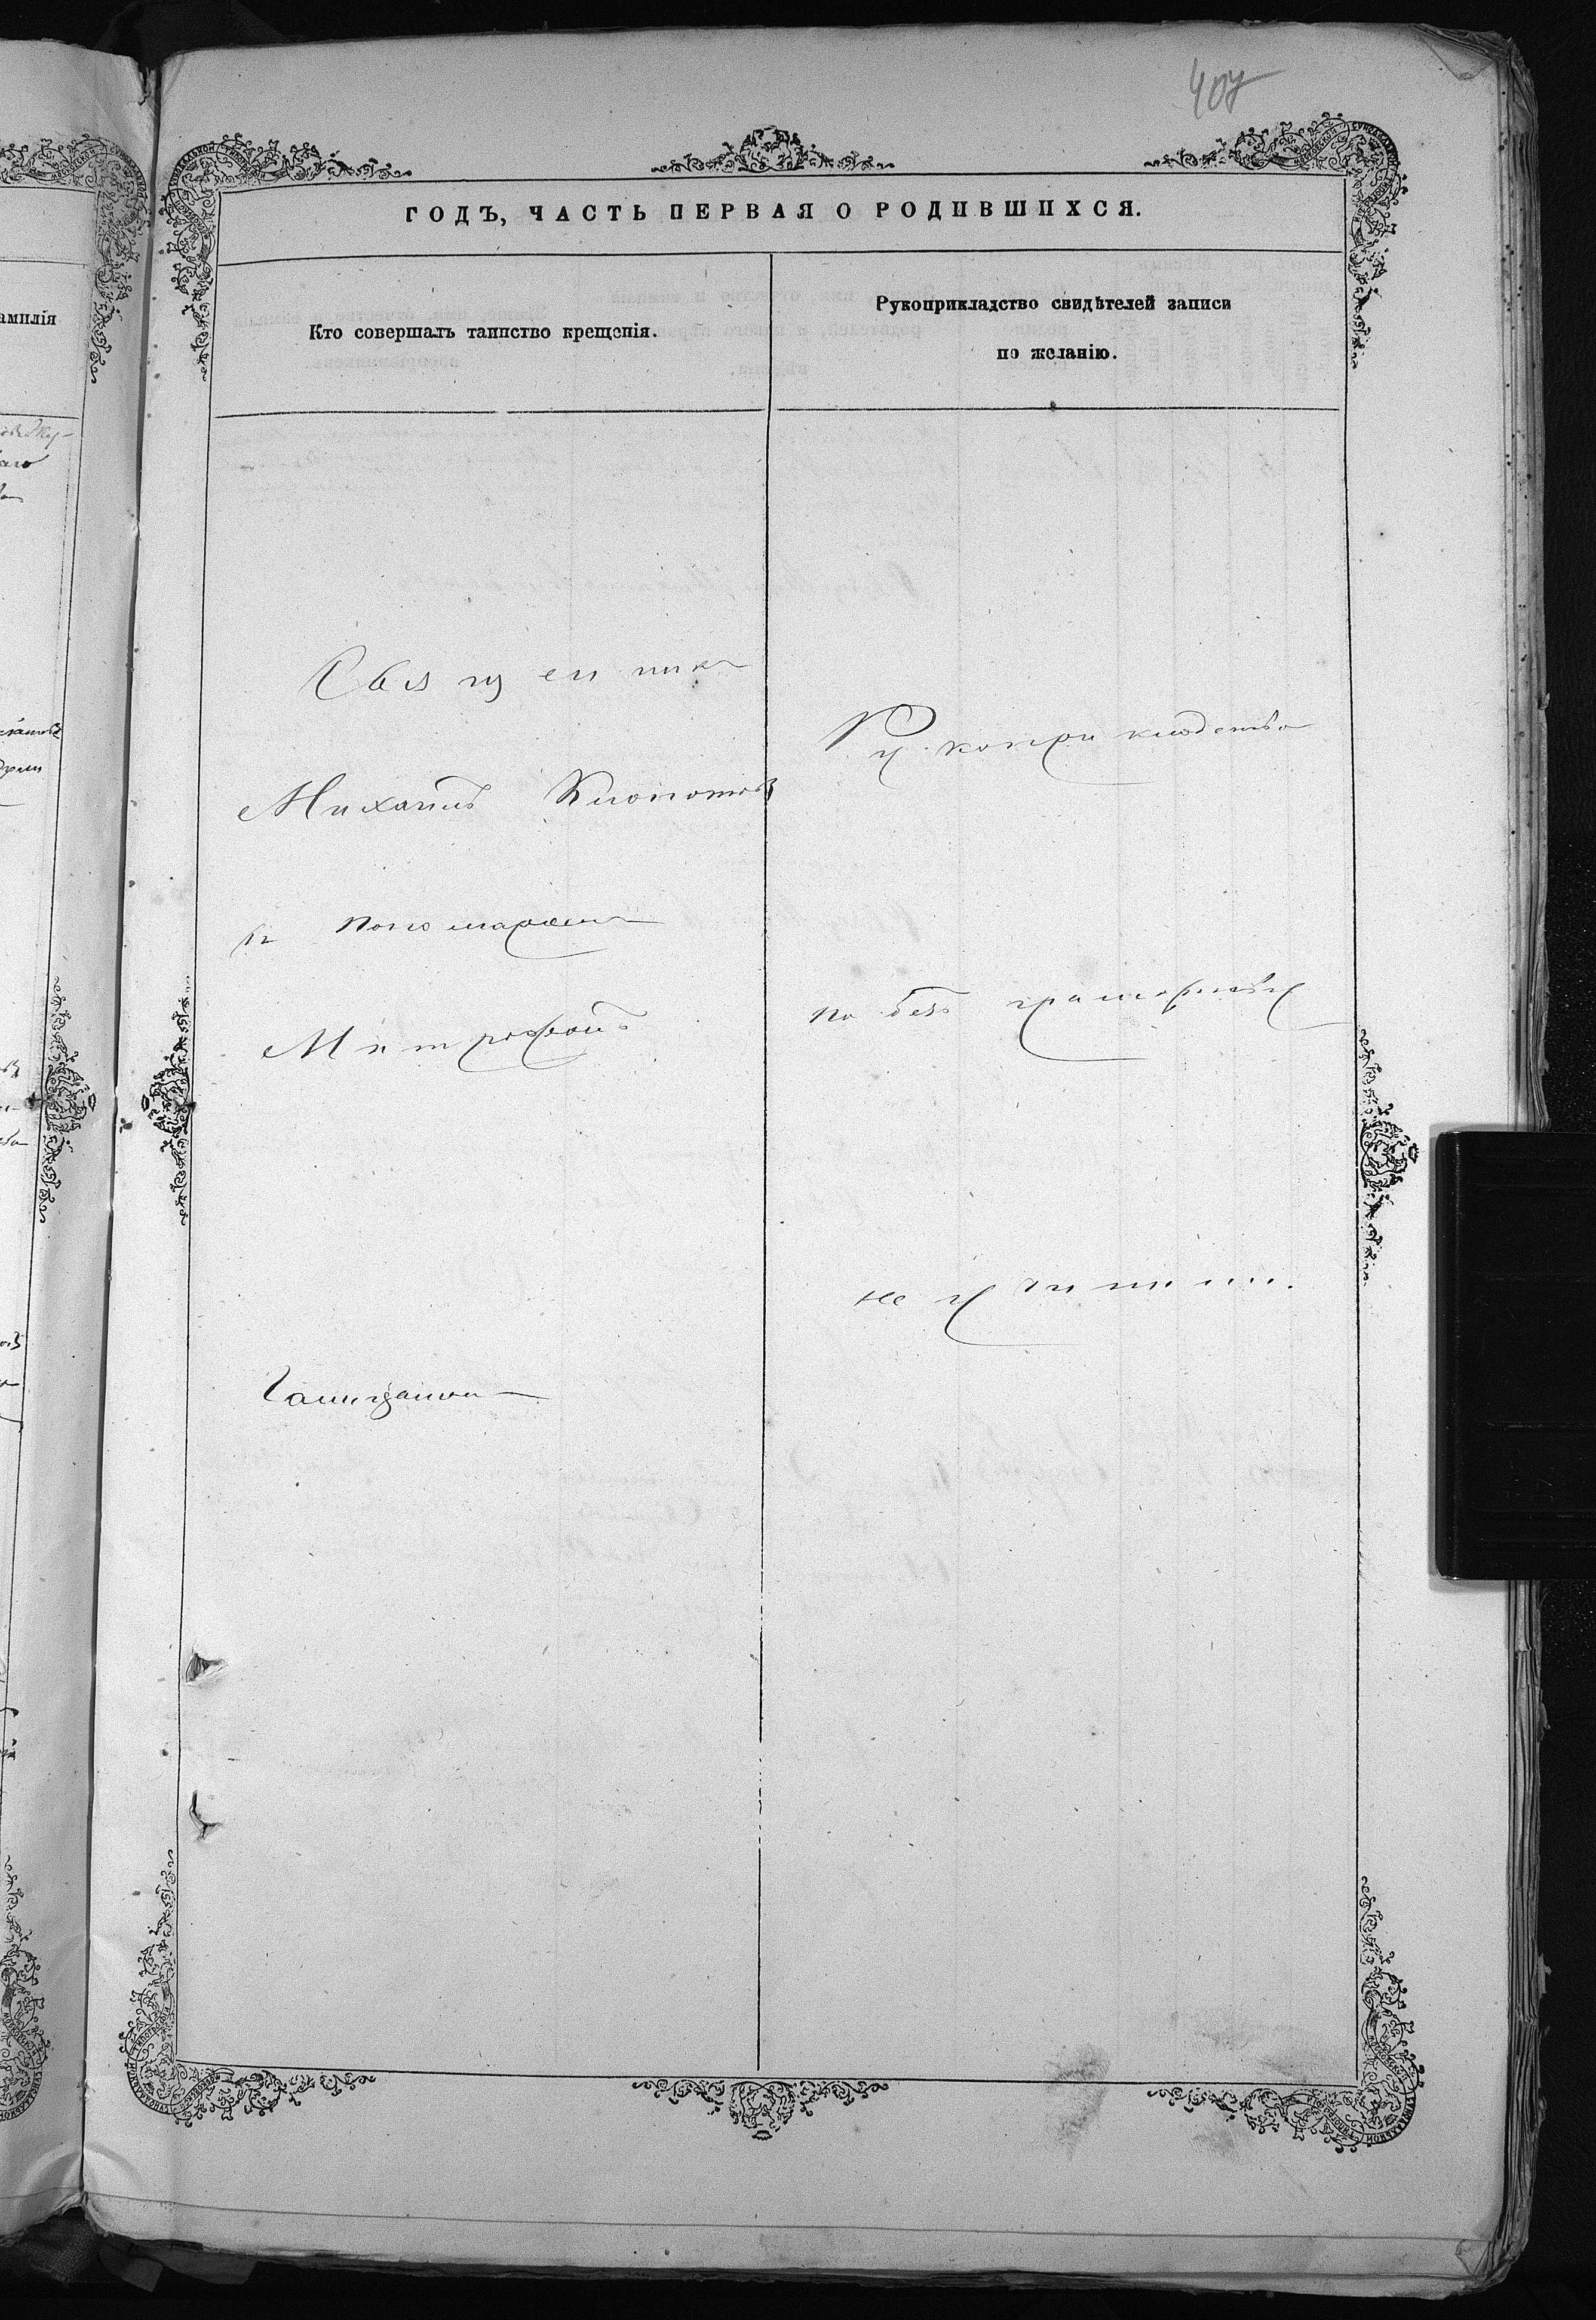 407
ГОДЪ, ЧАСТЬ ПЕРВАЯ О РОДИВШИХСЯ.
амилія
Кто совершалъ таинство крещенія.
Рукоприкладство свидѣтелей записи
по желанію.
Священникъ
Михаилъ Клопотовъ
съ пономаремъ
Митрофанъ
Рукоприкладства
по безграмотству
не учинили.